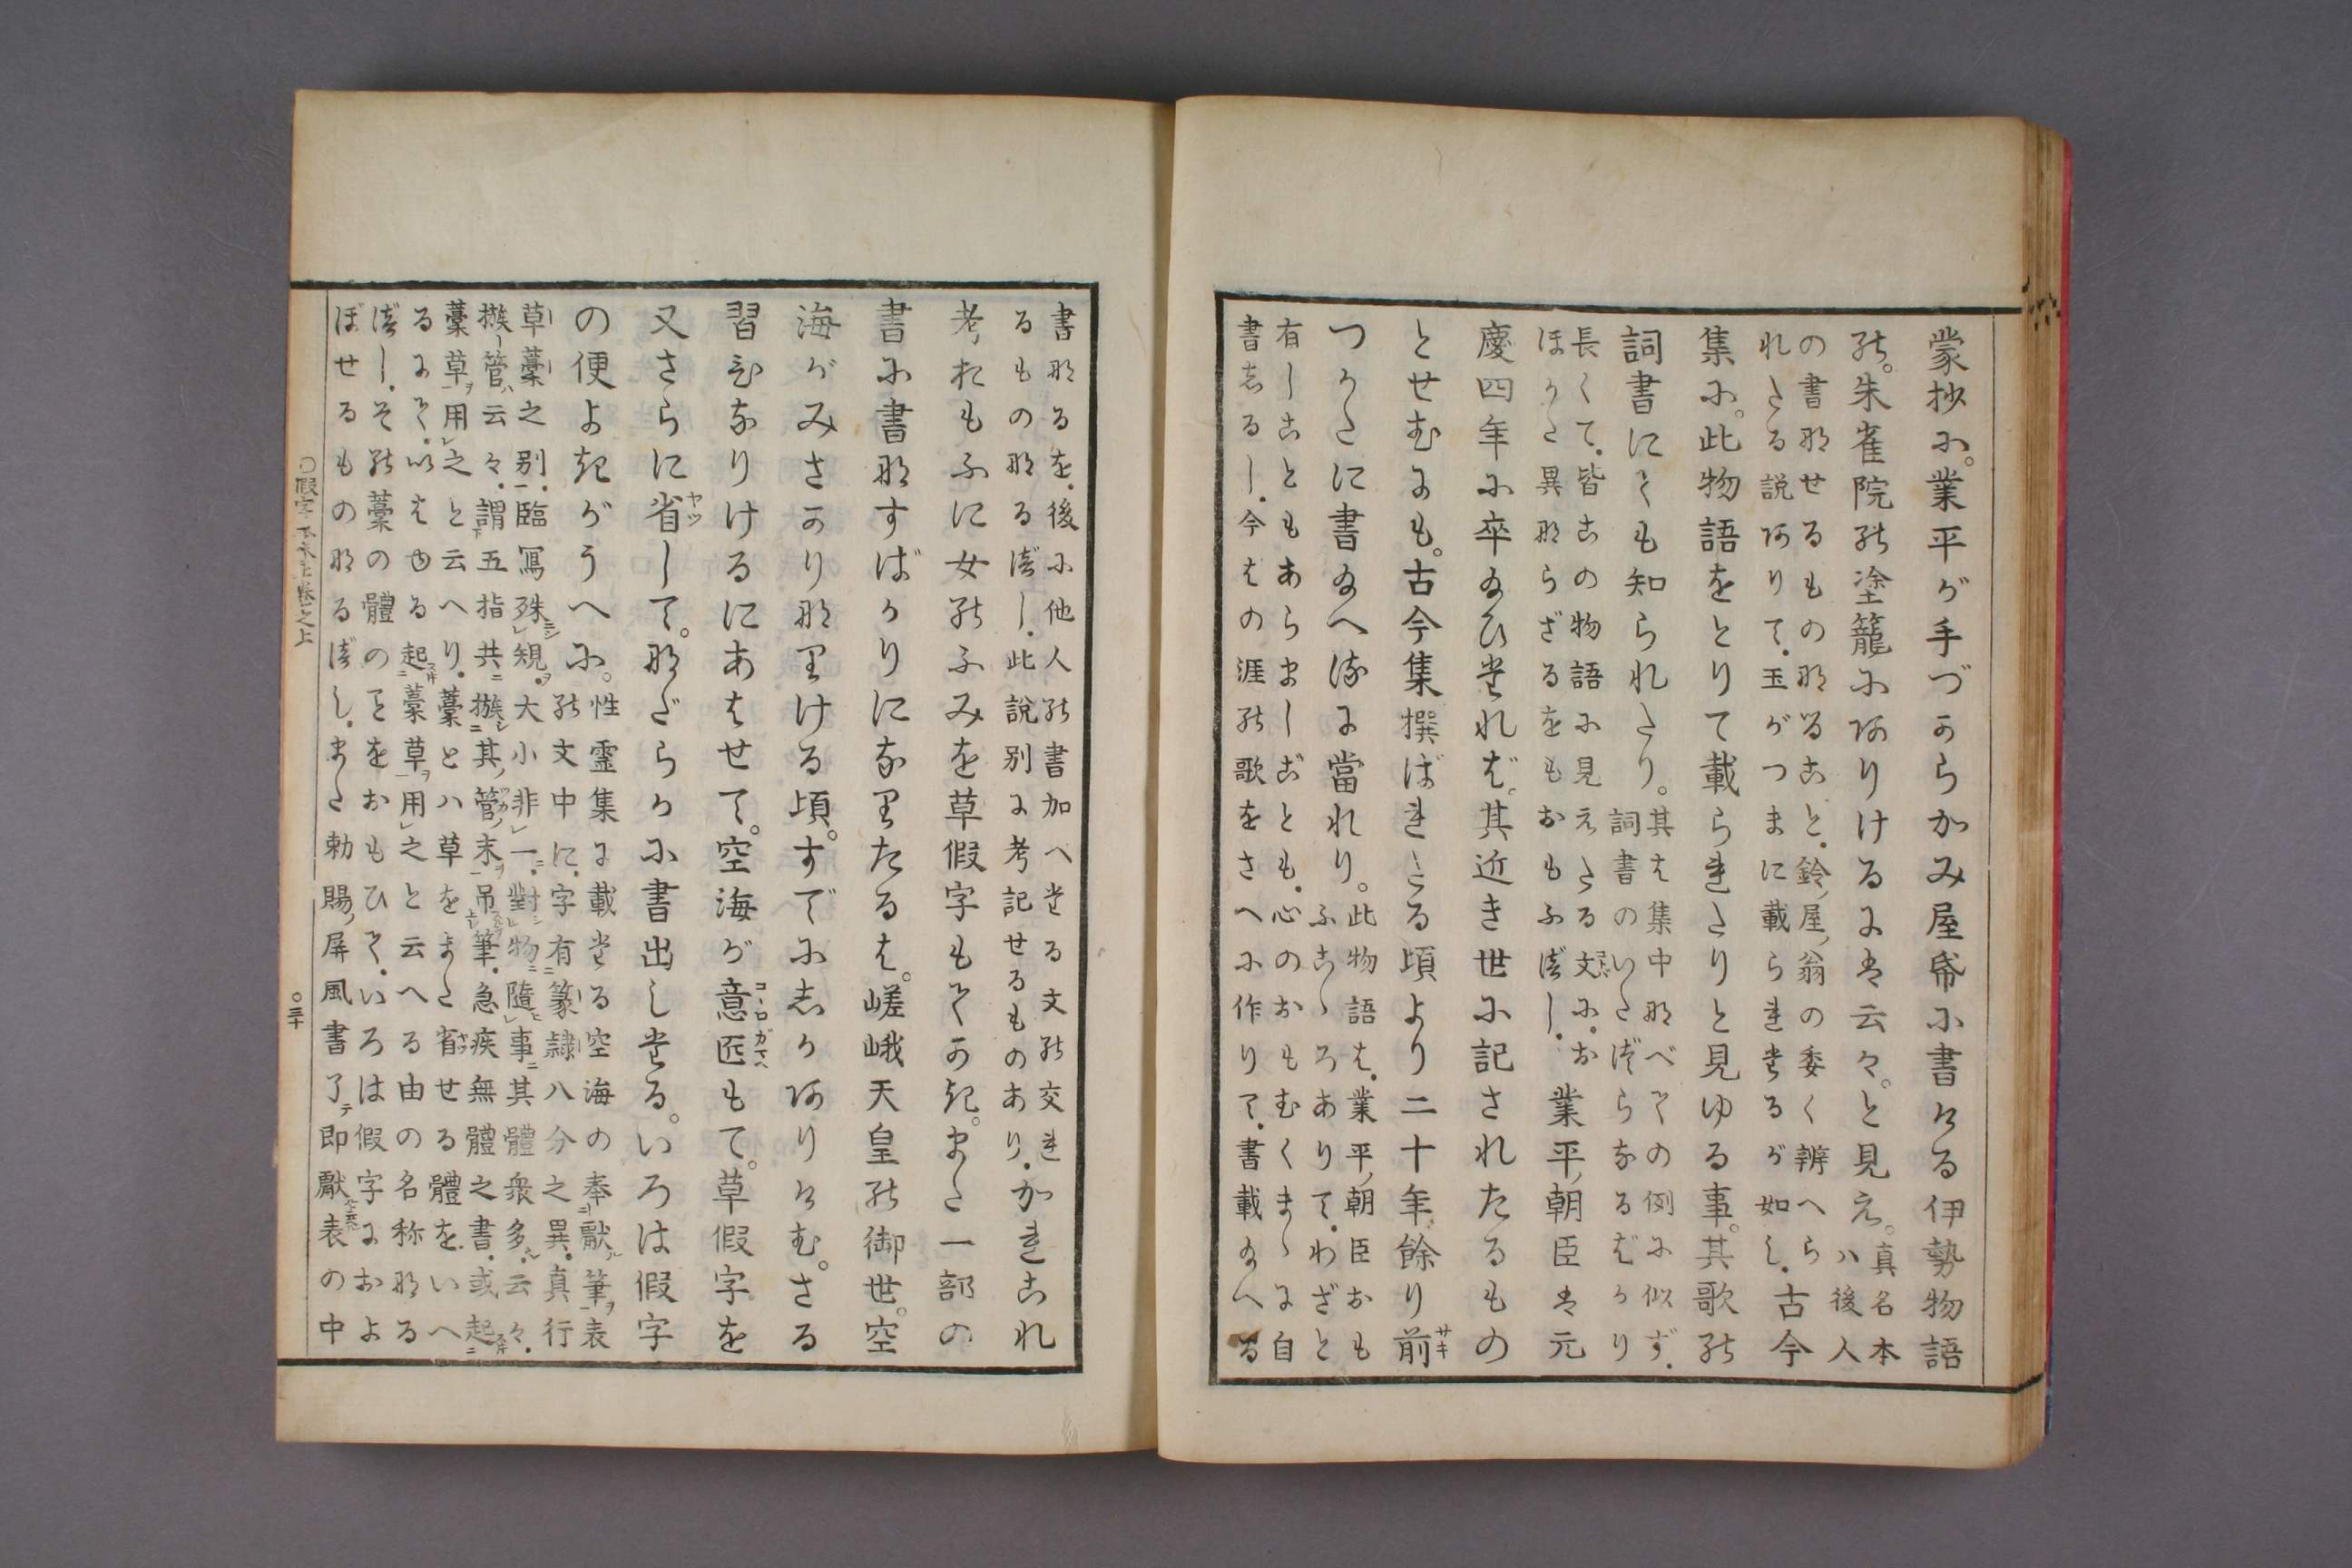 蒙抄に。業平が手づからかみ屋帋に書ける伊勢物語
の。朱雀院の塗籠にありけるよは云々。と見え。真名本
ハ後人
の書なせるもの那ること。鈴ノ屋ノ翁の委く辨へら
れたる説ありて。玉がつまに載られたるが如し。古今
集に。此物語をとりて載られたりと見ゆる事。其歌の
詞書にても知られたり。其は集中なべての例に似ず。
詞書のいたづらなるばかり
長くて。皆この物語に見えたる文に。お
ほかた異ならざるをもおもふべし。業平ノ朝臣は元
慶四年に卒給ひたれば。其近き世に記されたるもの
とせむよも。古今集撰ばれたる頃より二十年餘り前
サキ
つかたに書給へるに當れり。此物語は。業平ノ朝臣おも
ふこゝろありて。わざと
有しこともあらましごとも。心のおもむくまゝに自
書しるし。今はの涯の歌をさへに作りて。書載給へる
書なるを。後に他人の書加へたる文の交れ
るもの那るべし。此説別に考記せるものあり。かれこれ
考れもふに女のふみを草假字もてかき。また一部の
書に書なすばかりになりたるは。嵯峨天皇の御世。空
海がみさかりなりける頃。すでにしかありけむ。さる
習ひなりけるにあはせて。空海が意匠もて。草假字を
コヽロガマヘ
又さらに省して。なだらかに書出したる。いろは假字
ヤツ
の便よきがうへに。性靈集に載たる空海の奉獻筆表
の文中に。字有篆隷八分之異。真行
草藁之別。臨寫殊規。大小非一。對物隨事其體衆多。云々。
擫管云々。謂五指共擫其管末吊筆。急疾無體之書。或起
藁草用之と云へり。藁とハ草をまた省せる體を。いへ
るよて。いはゆる起藁草用之と云へる由の名称なる
べし。その藁の體のことをおもひて。いろは假字におよ
ぼせるものなるべし。また勅賜ノ屏風書了即獻表の中
○假字本末上巻之上
○三十